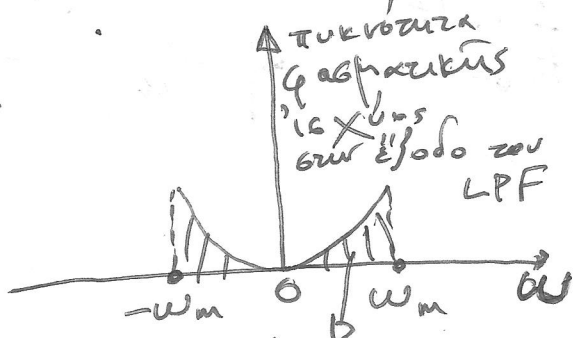 πυκνότητα
φασματικής
ισχύος
στην έξοδο του
LPF
-ωm
0
ωm
ω